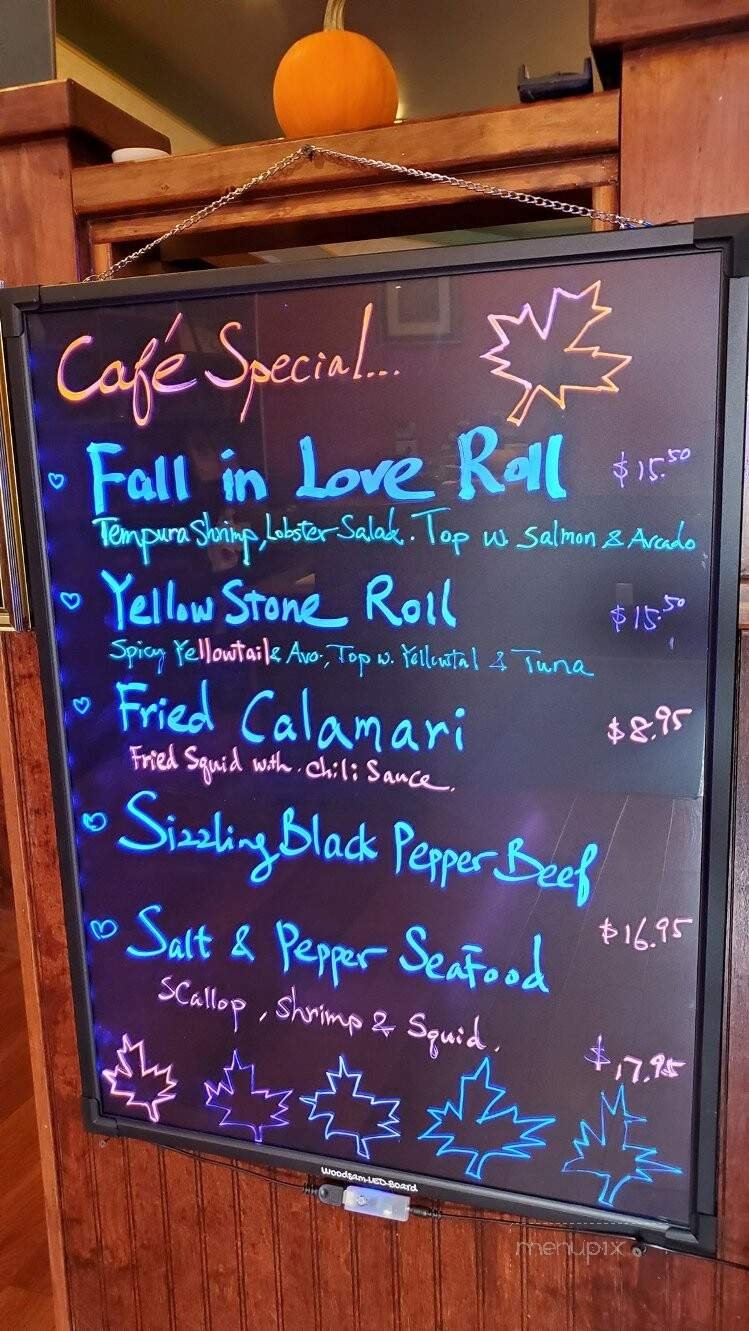 Café Special...
Fall in Love Roll $15.50
Tempura Shrimp, Lobster Salad. Top w. Salmon & Avcado
Yellow Stone Roll $15.50
Spicy Yellowtail & Avo., Top w. Yellowtal & Tuna
Fried Calamari $8.95
Fried Squid with chili Sauce.
Sizzling Black Pepper Beef
$16.95
Salt & Pepper Seafood
Scallop, Shrimp & Squid.
$17.95
Woodsam-LED-Board
menupix